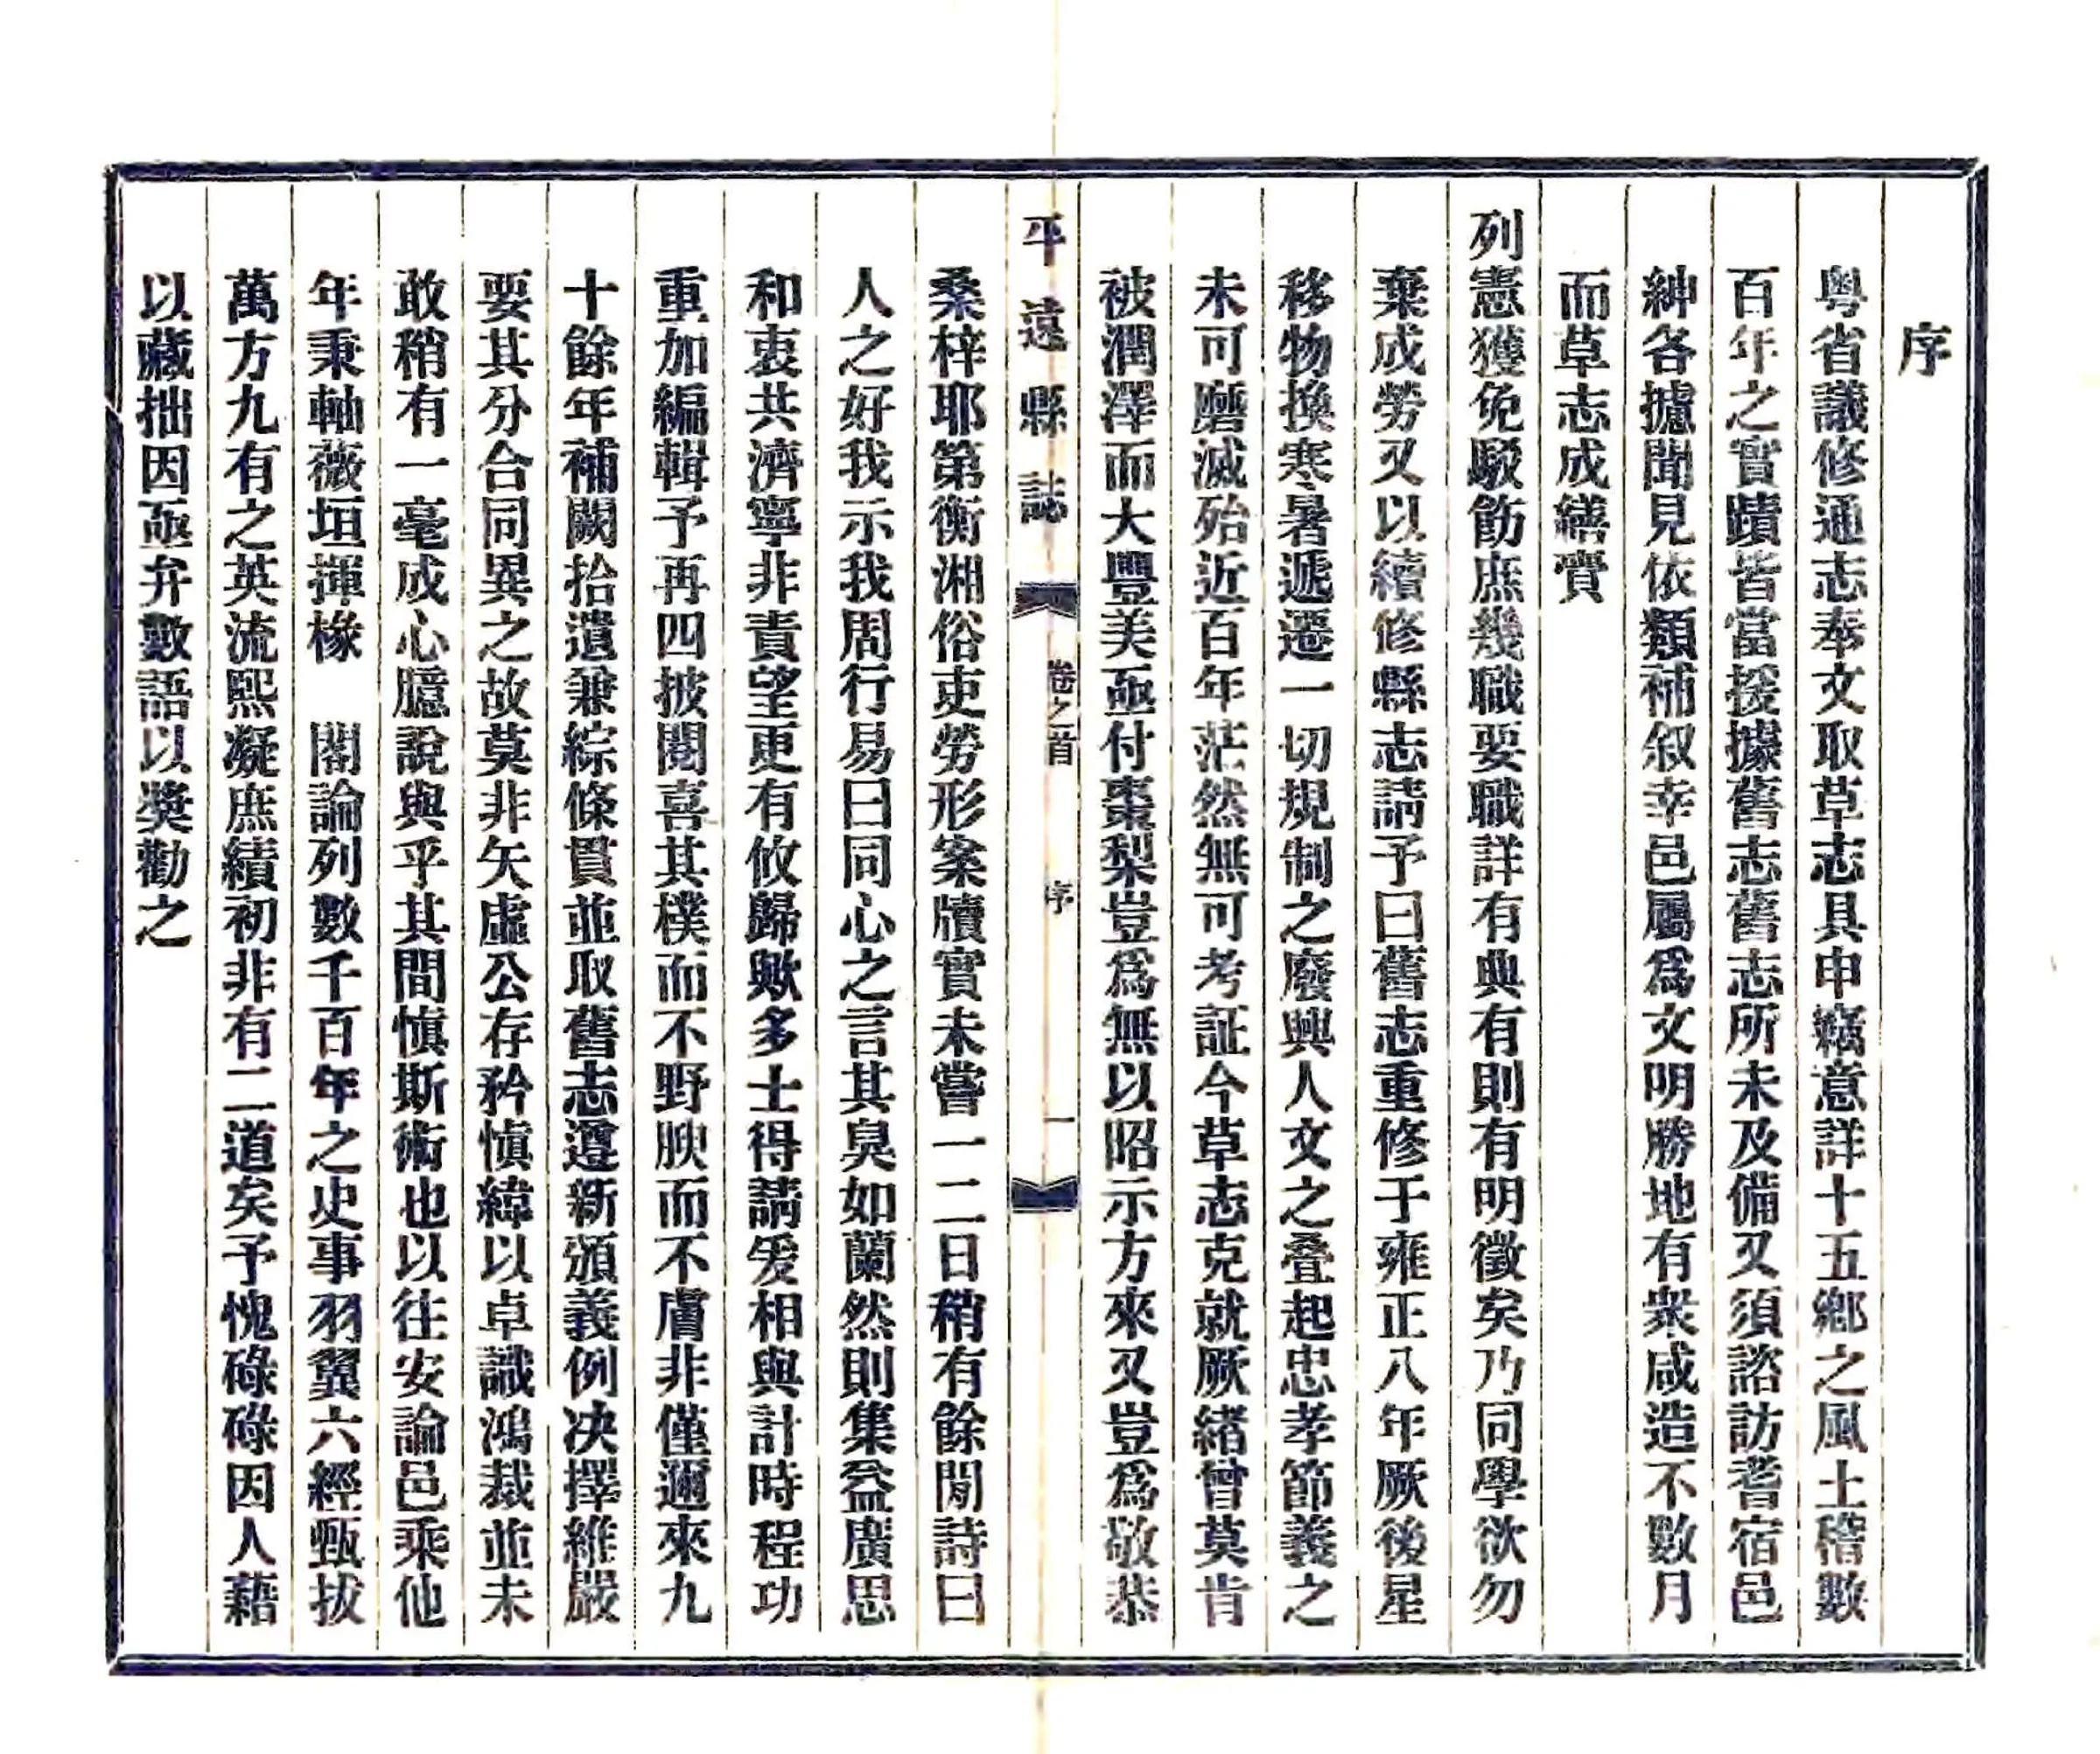 序
粤省議修通志奉文取草志具申竊意詳十五鄉之風土稽數
百年之實蹟皆當援據舊志舊志所未及備又須諮訪耆宿邑
紳各攄聞見依類補叙幸邑屬爲文明勝地有衆咸造不數月
而草志成繕賫
列憲獲免駁飭庶幾職要職詳有典有則有明徵矣乃同學欲勿
棄成勞又以續修縣志請予曰舊志重修于雍正八年厥後星
移物換寒暑遞遷一切規制之廢興人文之叠起忠孝節義之
未可磨滅殆近百年茫然無可考証今草志克就厥緒曾莫肯
被潤澤而大豐美亟付棗梨豈爲無以昭示方來又豈爲敬恭
平遠縣誌 卷之首 序 一
桑梓耶第衡湘俗吏勞形案牘實未嘗一二日稍有餘閒詩曰
人之好我示我周行易曰同心之言其臭如蘭然則集益廣思
和衷共濟寧非責望更有攸歸歟多士得請爰相與計時程功
重加編輯予再四披閱喜其樸而不野腴而不膚非僅邇來九
十餘年補闕拾遺兼綜條貫並取舊志遵新頒義例决擇維嚴
要其分合同異之故莫非矢虛公存矜慎緯以卓識鴻裁並未
敢稍有一毫成心臆說與乎其間慎斯術也以往安論邑乘他
年秉軸薇垣揮椽 閣論列數千百年之史事羽翼六經甄拔
萬方九有之英流熙凝庶績初非有二道矣予愧碌碌因人藉
以藏拙因亟弁數語以獎勸之